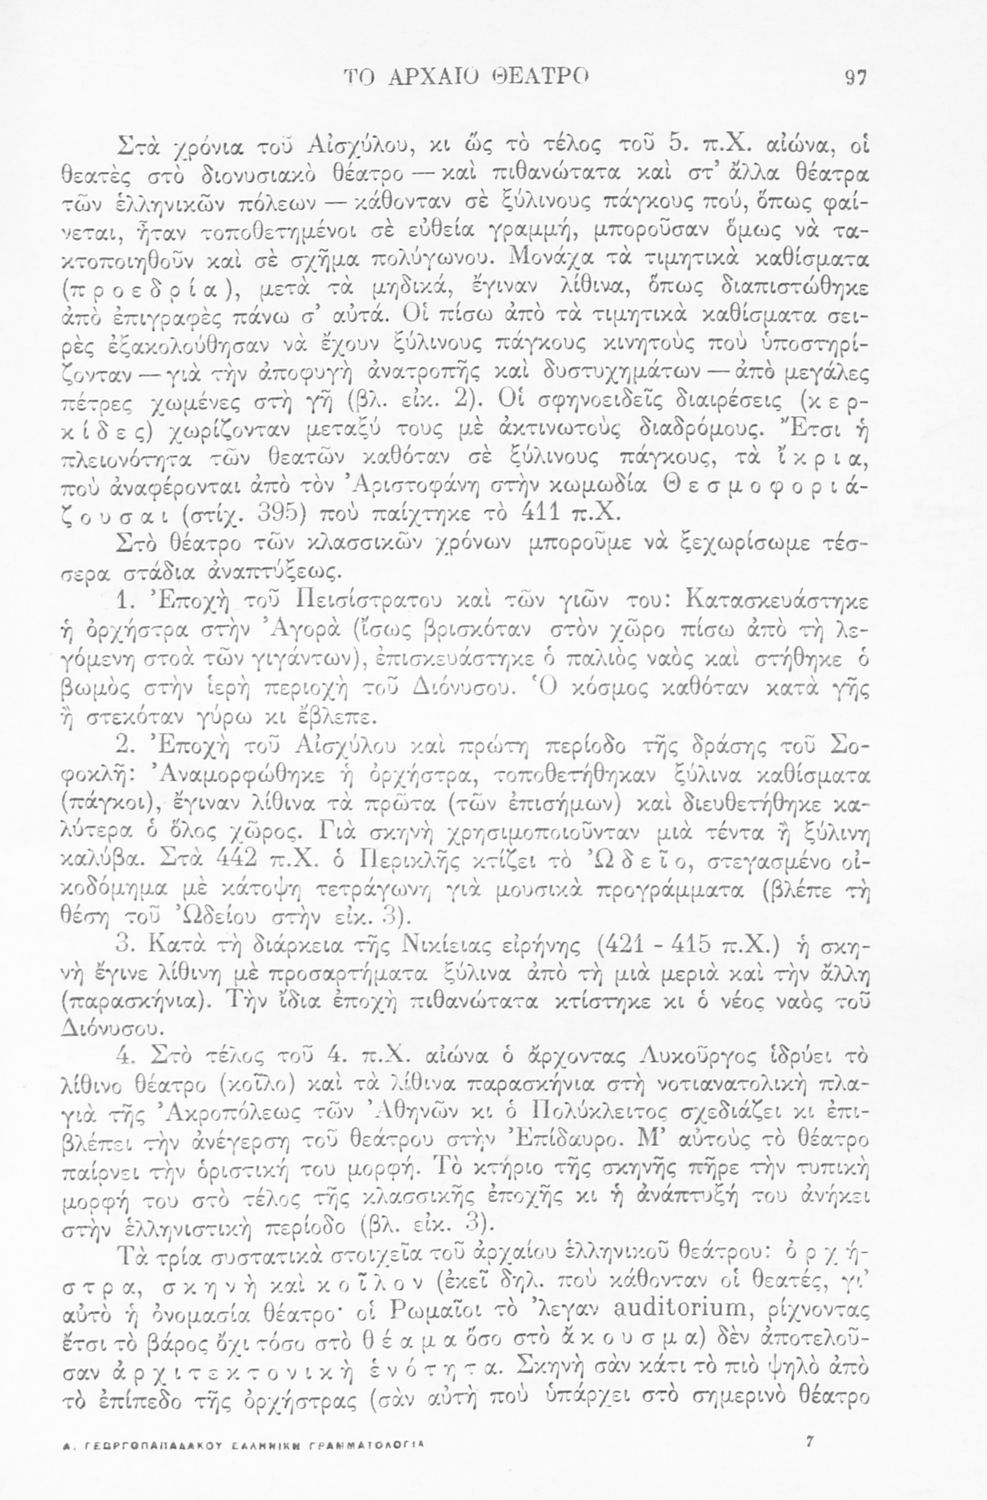 ΤΟ ΑΡΧΑΙΟ ΘΕΑΤΡΟ 97
Στὰ χρόνια τοῦ Αἰσχύλου, κι ὥς τὸ τέλος τοῦ 5. π.Χ. αἰώνα, οἱ
θεατὲς στὸ διονυσιακὸ θέατρο — καὶ πιθανώτατα καὶ στ’ ἄλλα θέατρα
τῶν ἑλληνικῶν πόλεων — κάθονταν σὲ ξύλινους πάγκους πού, ὅπως φαί-
νεται, ἦταν τοποθετημένοι σὲ εὐθεία γραμμή, μποροῦσαν ὅμως νὰ τα-
κτοποιηθοῦν καὶ σὲ σχῆμα πολύγωνου. Μονάχα τὰ τιμητικὰ καθίσματα
(π ρ ο ε δ ρ ί α), μετὰ τὰ μηδικά, ἔγιναν λίθινα, ὅπως διαπιστώθηκε
ἀπὸ ἐπιγραφὲς πάνω σ’ αὐτά. Οἱ πίσω ἀπὸ τὰ τιμητικὰ καθίσματα σει-
ρὲς ἐξακολούθησαν νὰ ἔχουν ξύλινους πάγκους κινητοὺς ποὺ ὑποστηρί-
ζονταν — γιὰ τὴν ἀποφυγὴ ἀνατροπῆς καὶ δυστυχημάτων — ἀπὸ μεγάλες
πέτρες χωμένες στὴ γῆ (βλ. εἰκ. 2). Οἱ σφηνοειδεῖς διαιρέσεις (κ ε ρ-
κ ί δ ε ς) χωρίζονταν μεταξύ τους μὲ ἀκτινωτοὺς διαδρόμους. Ἔτσι ἡ
πλειονότητα τῶν θεατῶν καθόταν σὲ ξύλινους πάγκους, τὰ ἴ κ ρ ι α,
ποὺ ἀναφέρονται ἀπὸ τὸν Ἀριστοφάνη στὴν κωμωδία Θ ε σ μ ο φ ο ρ ι ά-
ζ ο υ σ α ι (στίχ. 395) ποὺ παίχτηκε τὸ 411 π.Χ.
Στὸ θέατρο τῶν κλασσικῶν χρόνων μποροῦμε νὰ ξεχωρίσωμε τέσ-
σερα στάδια ἀναπτύξεως.
1. Ἐποχὴ τοῦ Πεισίστρατου καὶ τῶν γιῶν του: Κατασκευάστηκε
ἡ ὀρχήστρα στὴν Ἀγορὰ (ἴσως βρισκόταν στὸν χῶρο πίσω ἀπὸ τὴ λε-
γόμενη στοὰ τῶν γιγάντων), ἐπισκευάστηκε ὁ παλιὸς ναὸς καὶ στήθηκε ὁ
βωμὸς στὴν ἱερὴ περιοχὴ τοῦ Διόνυσου. Ὁ κόσμος καθόταν κατὰ γῆς
ἢ στεκόταν γύρω κι ἔβλεπε.
2. Ἐποχὴ τοῦ Αἰσχύλου καὶ πρώτη περίοδο τῆς δράσης τοῦ Σο-
φοκλῆ: Ἀναμορφώθηκε ἡ ὀρχήστρα, τοποθετήθηκαν ξύλινα καθίσματα
(πάγκοι), ἔγιναν λίθινα τὰ πρῶτα (τῶν ἐπισήμων) καὶ διευθετήθηκε κα-
λύτερα ὁ ὅλος χῶρος. Γιὰ σκηνὴ χρησιμοποιοῦνταν μιὰ τέντα ἢ ξύλινη
καλύβα. Στὰ 442 π.Χ. ὁ Περικλῆς κτίζει τὸ Ὠ δ ε ῖ ο, στεγασμένο οἰ-
κοδόμημα μὲ κάτοψη τετράγωνη γιὰ μουσικὰ προγράμματα (βλέπε τὴ
θέση τοῦ Ὠδείου στὴν εἰκ. 3).
3. Κατὰ τὴ διάρκεια τῆς Νικίειας εἰρήνης (421 - 415 π.Χ.) ἡ σκη-
νὴ ἔγινε λίθινη μὲ προσαρτήματα ξύλινα ἀπὸ τὴ μιὰ μεριὰ καὶ τὴν ἄλλη
(παρασκήνια). Τὴν ἴδια ἐποχὴ πιθανώτατα κτίστηκε κι ὁ νέος ναὸς τοῦ
Διόνυσου.
4. Στὸ τέλος τοῦ 4. π.Χ. αἰώνα ὁ ἄρχοντας Λυκοῦργος ἱδρύει τὸ
λίθινο θέατρο (κοῖλο) καὶ τὰ λίθινα παρασκήνια στὴ νοτιανατολικὴ πλα-
γιὰ τῆς Ἀκροπόλεως τῶν Ἀθηνῶν κι ὁ Πολύκλειτος σχεδιάζει κι ἐπι-
βλέπει τὴν ἀνέγερση τοῦ θεάτρου στὴν Ἐπίδαυρο. Μ’ αὐτοὺς τὸ θέατρο
παίρνει τὴν ὁριστική του μορφή. Τὸ κτήριο τῆς σκηνῆς πῆρε τὴν τυπικὴ
μορφή του στὸ τέλος τῆς κλασσικῆς ἐποχῆς κι ἡ ἀνάπτυξή του ἀνήκει
στὴν ἑλληνιστικὴ περίοδο (βλ. εἰκ. 3).
Τὰ τρία συστατικὰ στοιχεῖα τοῦ ἀρχαίου ἑλληνικοῦ θεάτρου: ὀ ρ χ ή-
σ τ ρ α, σ κ η ν ὴ καὶ κ ο ῖ λ ο ν (ἐκεῖ δηλ. ποὺ κάθονταν οἱ θεατές, γι’
αὐτὸ ἡ ὀνομασία θέατρο· οἱ Ρωμαῖοι τὸ ’λεγαν auditorium, ρίχνοντας
ἔτσι τὸ βάρος ὄχι τόσο στὸ θ έ α μ α ὅσο στὸ ἄ κ ο υ σ μ α) δὲν ἀποτελοῦ-
σαν ἀ ρ χ ι τ ε κ τ ο ν ι κ ὴ ἑ ν ό τ η τ α. Σκηνὴ σὰν κάτι τὸ πιὸ ψηλὸ ἀπὸ
τὸ ἐπίπεδο τῆς ὀρχήστρας (σὰν αὐτὴ ποὺ ὑπάρχει στὸ σημερινὸ θέατρο
Α. ΓΕΩΡΓΟΠΑΠΑΔΑΚΟΥ ΕΛΛΗΝΙΚΗ ΓΡΑΜΜΑΤΟΛΟΓΙΑ 7